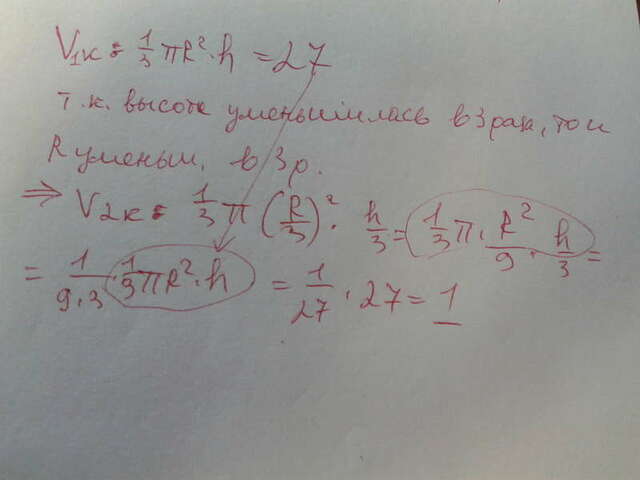 V₁к = 1/3 πR²·h = 27
т.к. высота уменьшилась в 3 раза, то и
R уменьш. в 3 р.
⇒ V₂к = 1/3 π (R/3)² · h/3 = 1/3 π · R²/9 · h/3 =
= 1/(9·3) · 1/3 πR²·h = 1/27 · 27 = 1